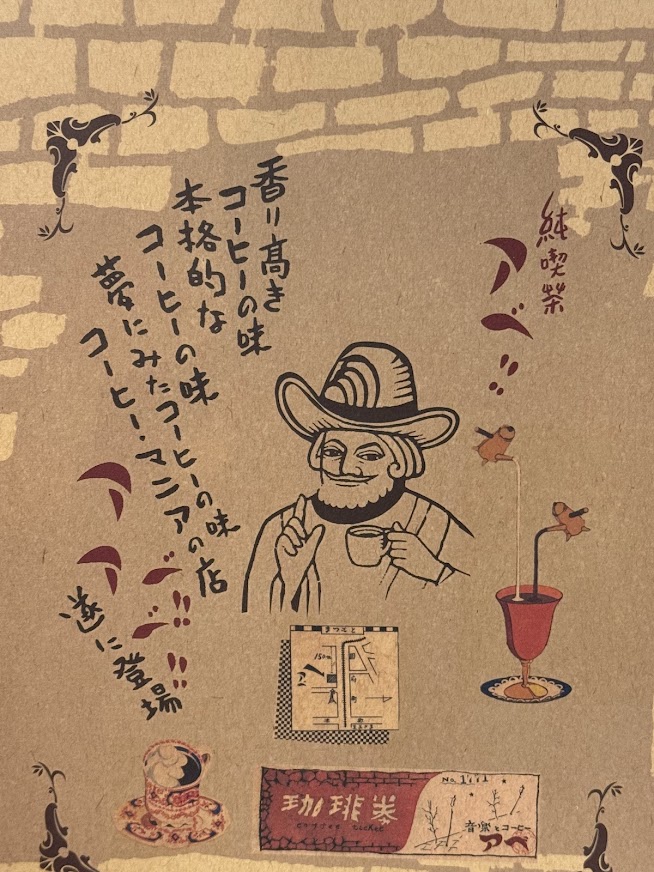 純喫茶
アベ!!
香り高き
コーヒーの味
本格的な
コーヒーの味
夢にみたコーヒーの味
コーヒー・マニアの店
アベ!!
アベ!!
遂に登場
まつもと
150m
アベ
No.1111
珈琲券
coffee ticket
音楽とコーヒー
アベ